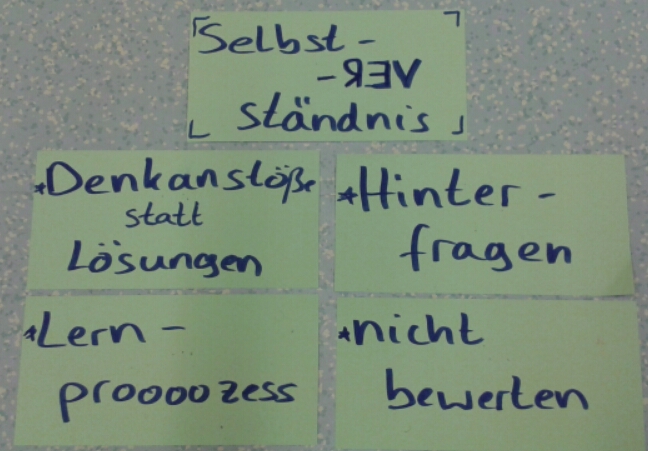 Selbst-
-VER-
ständnis
*Denkanstöße
statt
Lösungen
*Hinter-
fragen
*Lern-
prooooozess
*nicht
bewerten